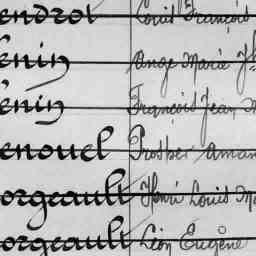 endrot Louis François
énin Ange Marie Jh
énin François Jean M
enouel Prosper Aman
orgeault Henri Louis Ma
orgeault Léon Eugène